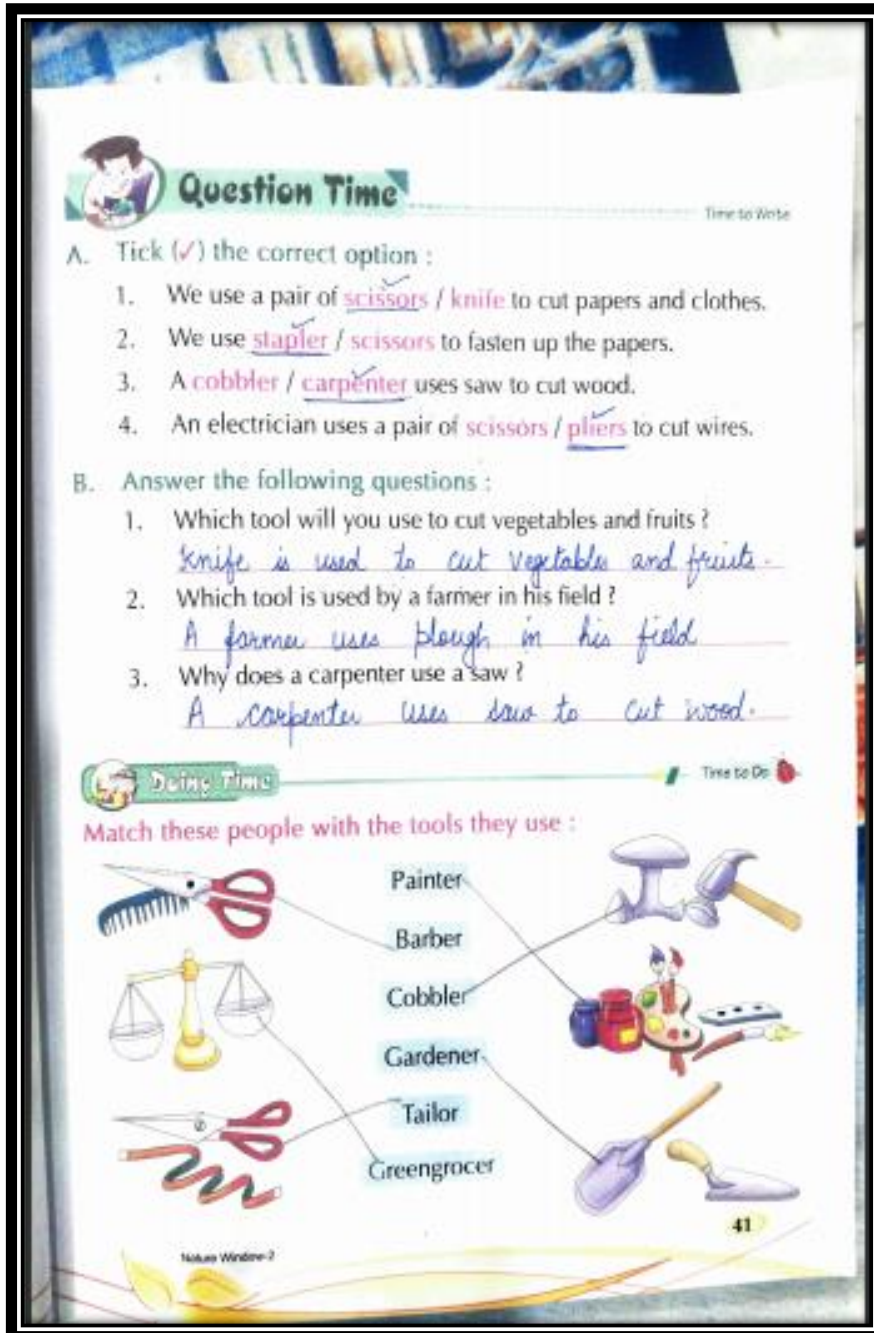 Question Time
Time to Write
A. Tick (✓) the correct option :
1. We use a pair of scissors / knife to cut papers and clothes.
2. We use stapler / scissors to fasten up the papers.
3. A cobbler / carpenter uses saw to cut wood.
4. An electrician uses a pair of scissors / pliers to cut wires.
B. Answer the following questions :
1. Which tool will you use to cut vegetables and fruits ?
Knife is used to cut vegetables and fruits.
2. Which tool is used by a farmer in his field ?
A farmer uses plough in his field
3. Why does a carpenter use a saw ?
A carpenter uses saw to cut wood.
Doing Time
Time to Do
Match these people with the tools they use :
Painter
Barber
Cobbler
Gardener
Tailor
Greengrocer
41
Nature Window-2